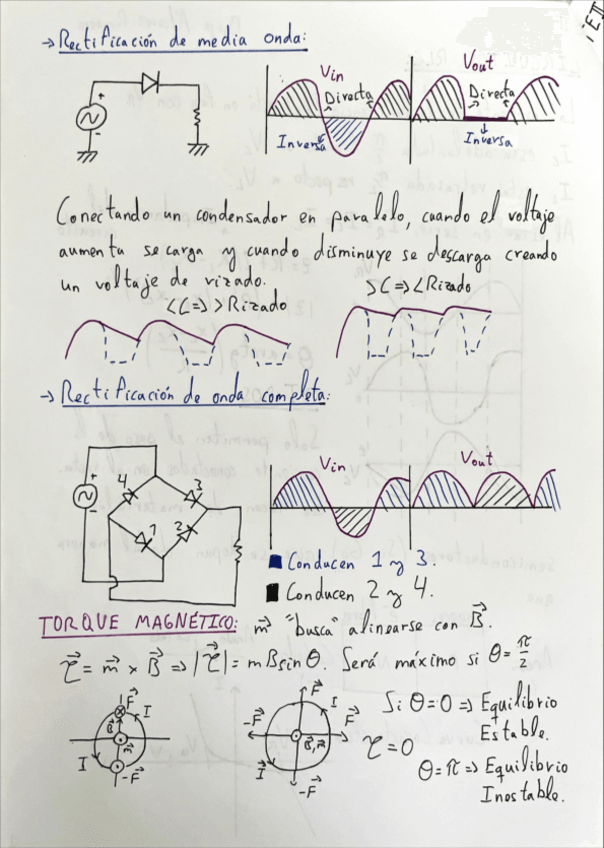 → Rectificación de media onda:
Vin
Vout
Directa
Directa
Inversa
Inversa
+
-
Conectando un condensador en paralelo, cuando el voltaje
aumenta se carga y cuando disminuye se descarga creando
un voltaje de rizado.
<C=> >Rizado
>C=> <Rizado
→ Rectificación de onda completa:
+
-
4
3
1
2
Vin
Vout
Conducen 1 y 3.
Conducen 2 y 4.
TORQUE MAGNÉTICO: m⃗ "busca" alinearse con B⃗.
τ⃗ = m⃗ × B⃗ => |τ⃗| = mBsinθ. Será máximo si θ = π/2
F⃗
I
B⃗
m⃗
I
-F⃗
F⃗
I
-F⃗
F⃗
B⃗,m⃗
I⃗
-F⃗
τ = 0
Si θ=0 => Equilibrio
Estable.
θ=π => Equilibrio
Inestable.